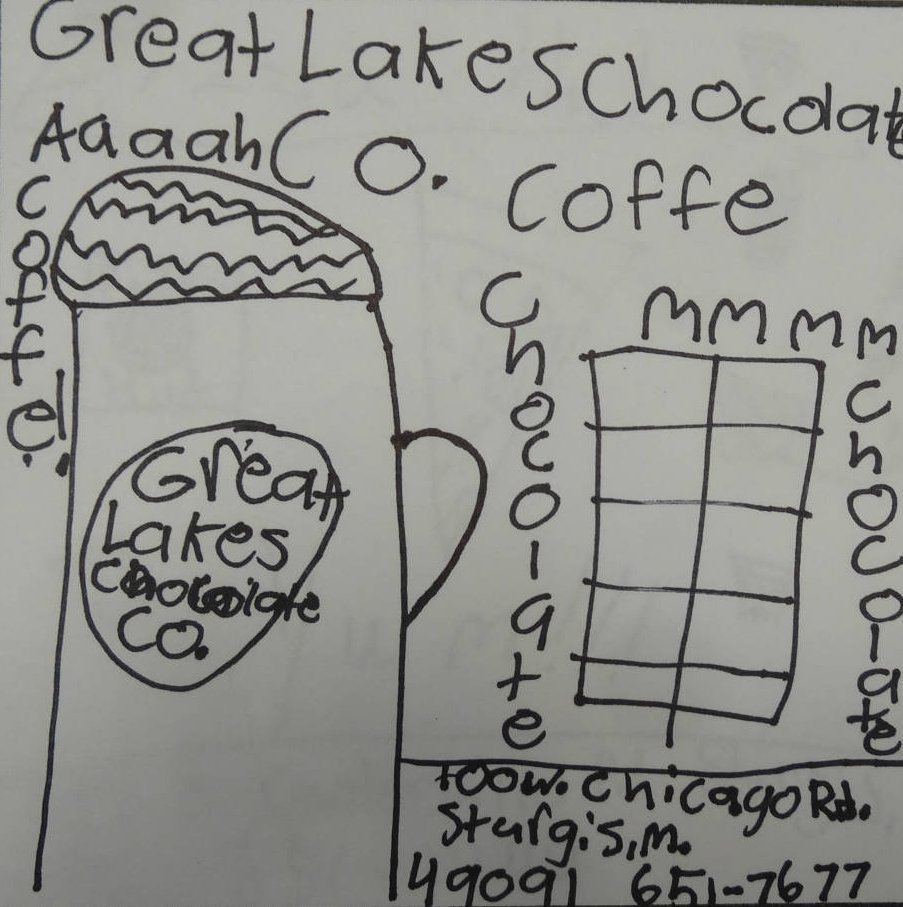 Great Lakes Chocolate
Co.
Aaaah
Coffe!
Coffe
Chocolate
MMMM
Chocolate
Great
Lakes
Chocolate
Co.
100 w. Chicago Rd.
Sturgis, M.
49091 651-7677